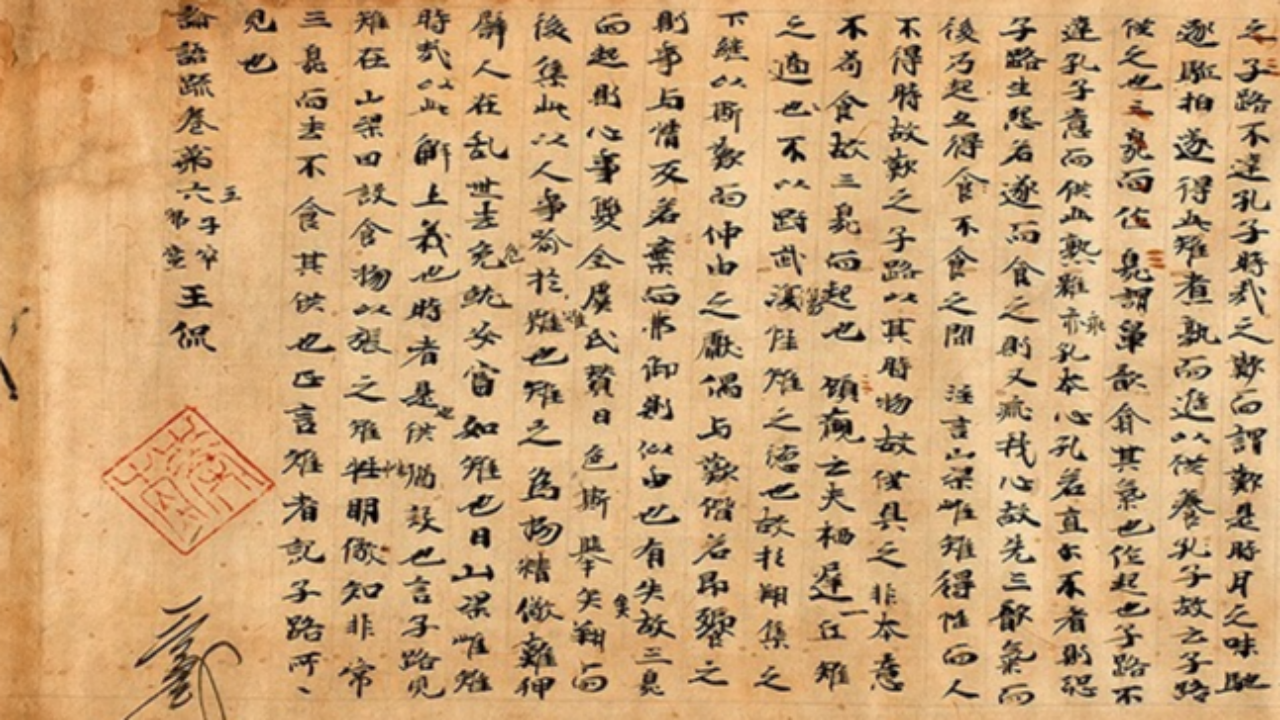 之子路不達孔子時哉之歎而謂歎是時月之味馳
逐驅拍遂得此雉煮熟而進以供養孔子故云子路
供之也三臭而作 臭謂鼻歆翕其氣也作起也子路不
達孔子意而供此熟雉乖孔本心孔若直尓不者則恐
子路生怨若遂而食之則又乖我心故先三歆氣而
後乃起亦得食不食之間 注言山梁雌雉得性而人
不得時故歎之子路以其時物故供具之非本意
不苟食故三臭而起也 顧歡云夫栖遅一丘雉
之適也不以剛武傷性雉之德也故於翔集之
下継以斯歎而仲由之獻偶与歎偕若即饗之
則事与情反若棄而弗御則似由也有失故三臭
而起則心事雙全虞氏賛曰色斯舉矣翔而
後集此以人事喻於雉也雉之為物精儆難狎
譬人在乱世去危就安當如雉也曰山梁雌雉
時哉以此解上義也時者是也供猶設也言子路見
雉在山梁因設食物以張之雉性明儆知非常
三臭而去不食其供也正言雌者記子路所
見也
論語疏卷第六 王侃